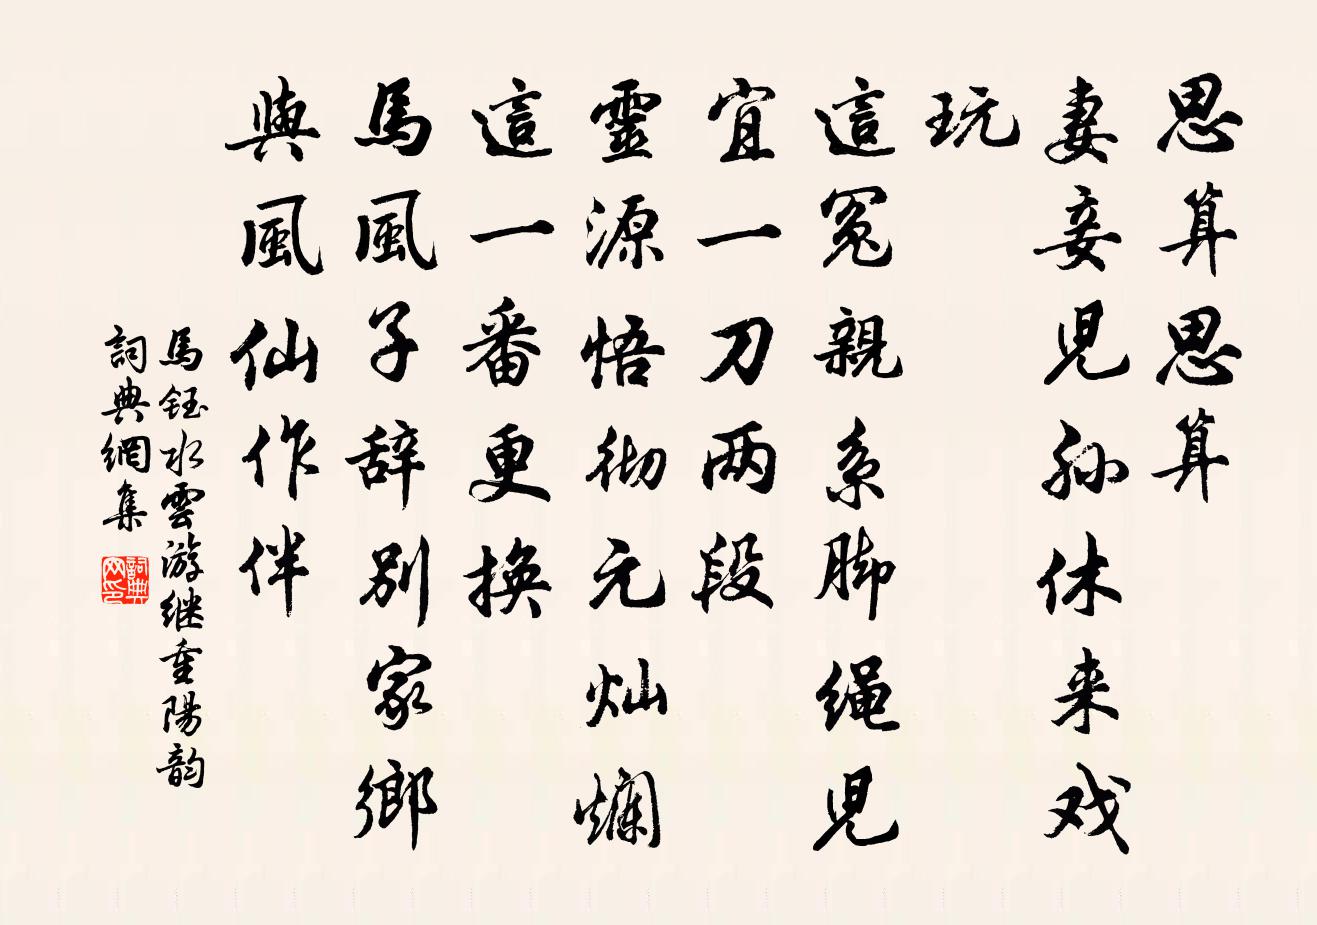 思算思算
妻妾児孙休来戏
玩
這冤親系脚绳児
宜一刀两段
靈源悟彻元灿爛
這一番更换
馬風子辞别家鄉
與風仙作伴
馬钰水雲游继重陽韵
詞典網集
詞典网印